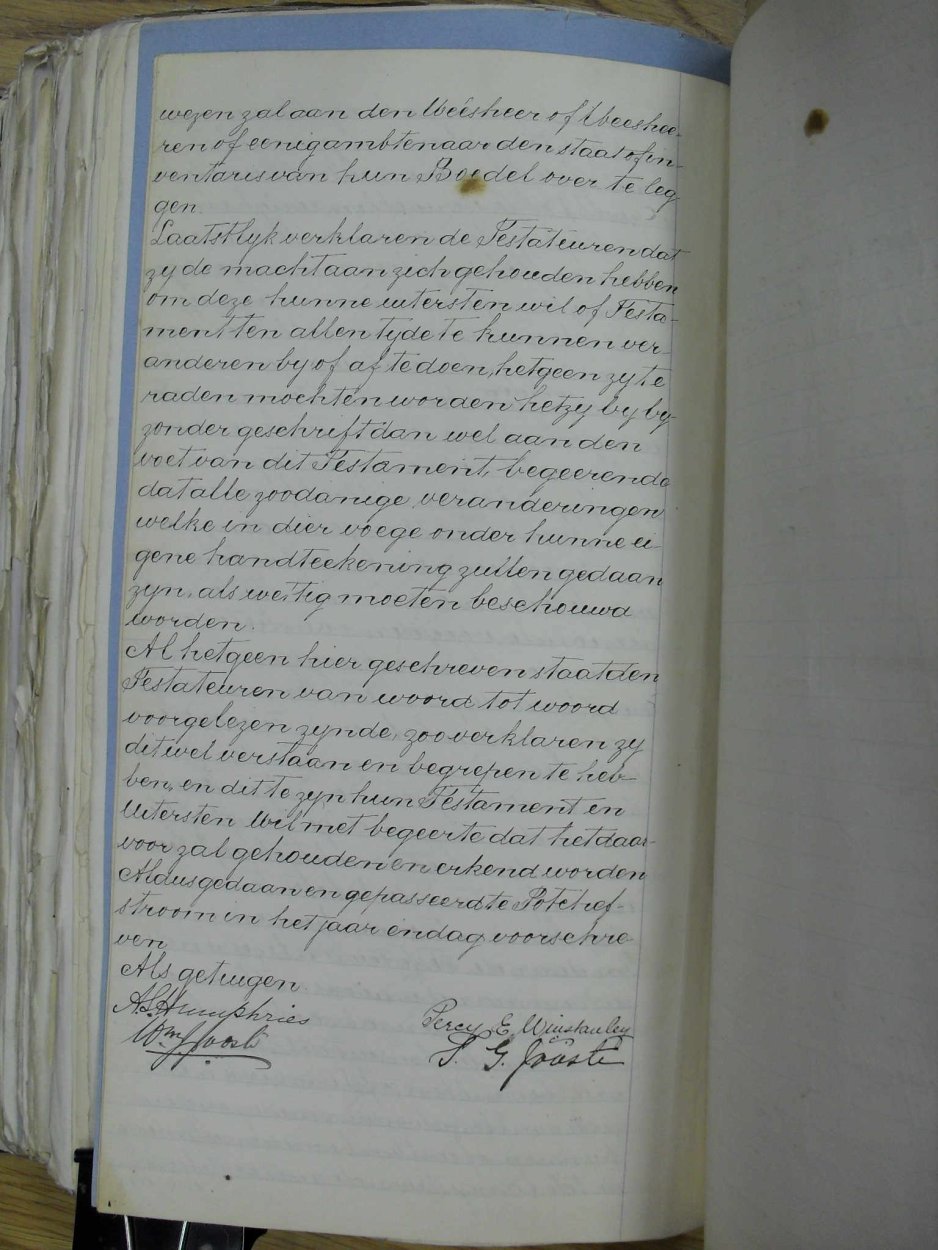 wezen zal aan den Weesheer of Weeshee-
ren of eenig ambtenaar den staat of in-
ventaris van hun Boedel over te leg
gen.
Laatstlyk verklaren de Testateuren dat
zy de macht aan zich gehouden hebben
om deze hunne uitersten wil of Testa-
ment ten allen tyde te kunnen ver-
anderen by of af te doen, hetgeen zy te
raden mochten worden hetzy by by
zonder geschrift dan wel aan den
voet van dit Testament, begeerende
dat alle zoodanige veranderingen
welke in dier voege onder hunne ei
gene handteekening zullen gedaan
zyn, als wettig moeten beschouwd
worden.
Al hetgeen hier geschreven staat den
Testateuren van woord tot woord
voorgelezen zynde, zoo verklaren zy
dit wel verstaan en begrepen te heb-
ben, en dit te zyn hun Testament en
Uitersten Wil met begeerte dat het daar
voor zal gehouden en erkend worden
Aldus gedaan en gepasseerd te Potchef-
stroom in het jaar en dag voorschre
ven
Als getuigen.
A. S. Humphries Percy E Winstanley
Wm J Joosti S. G. Joosti